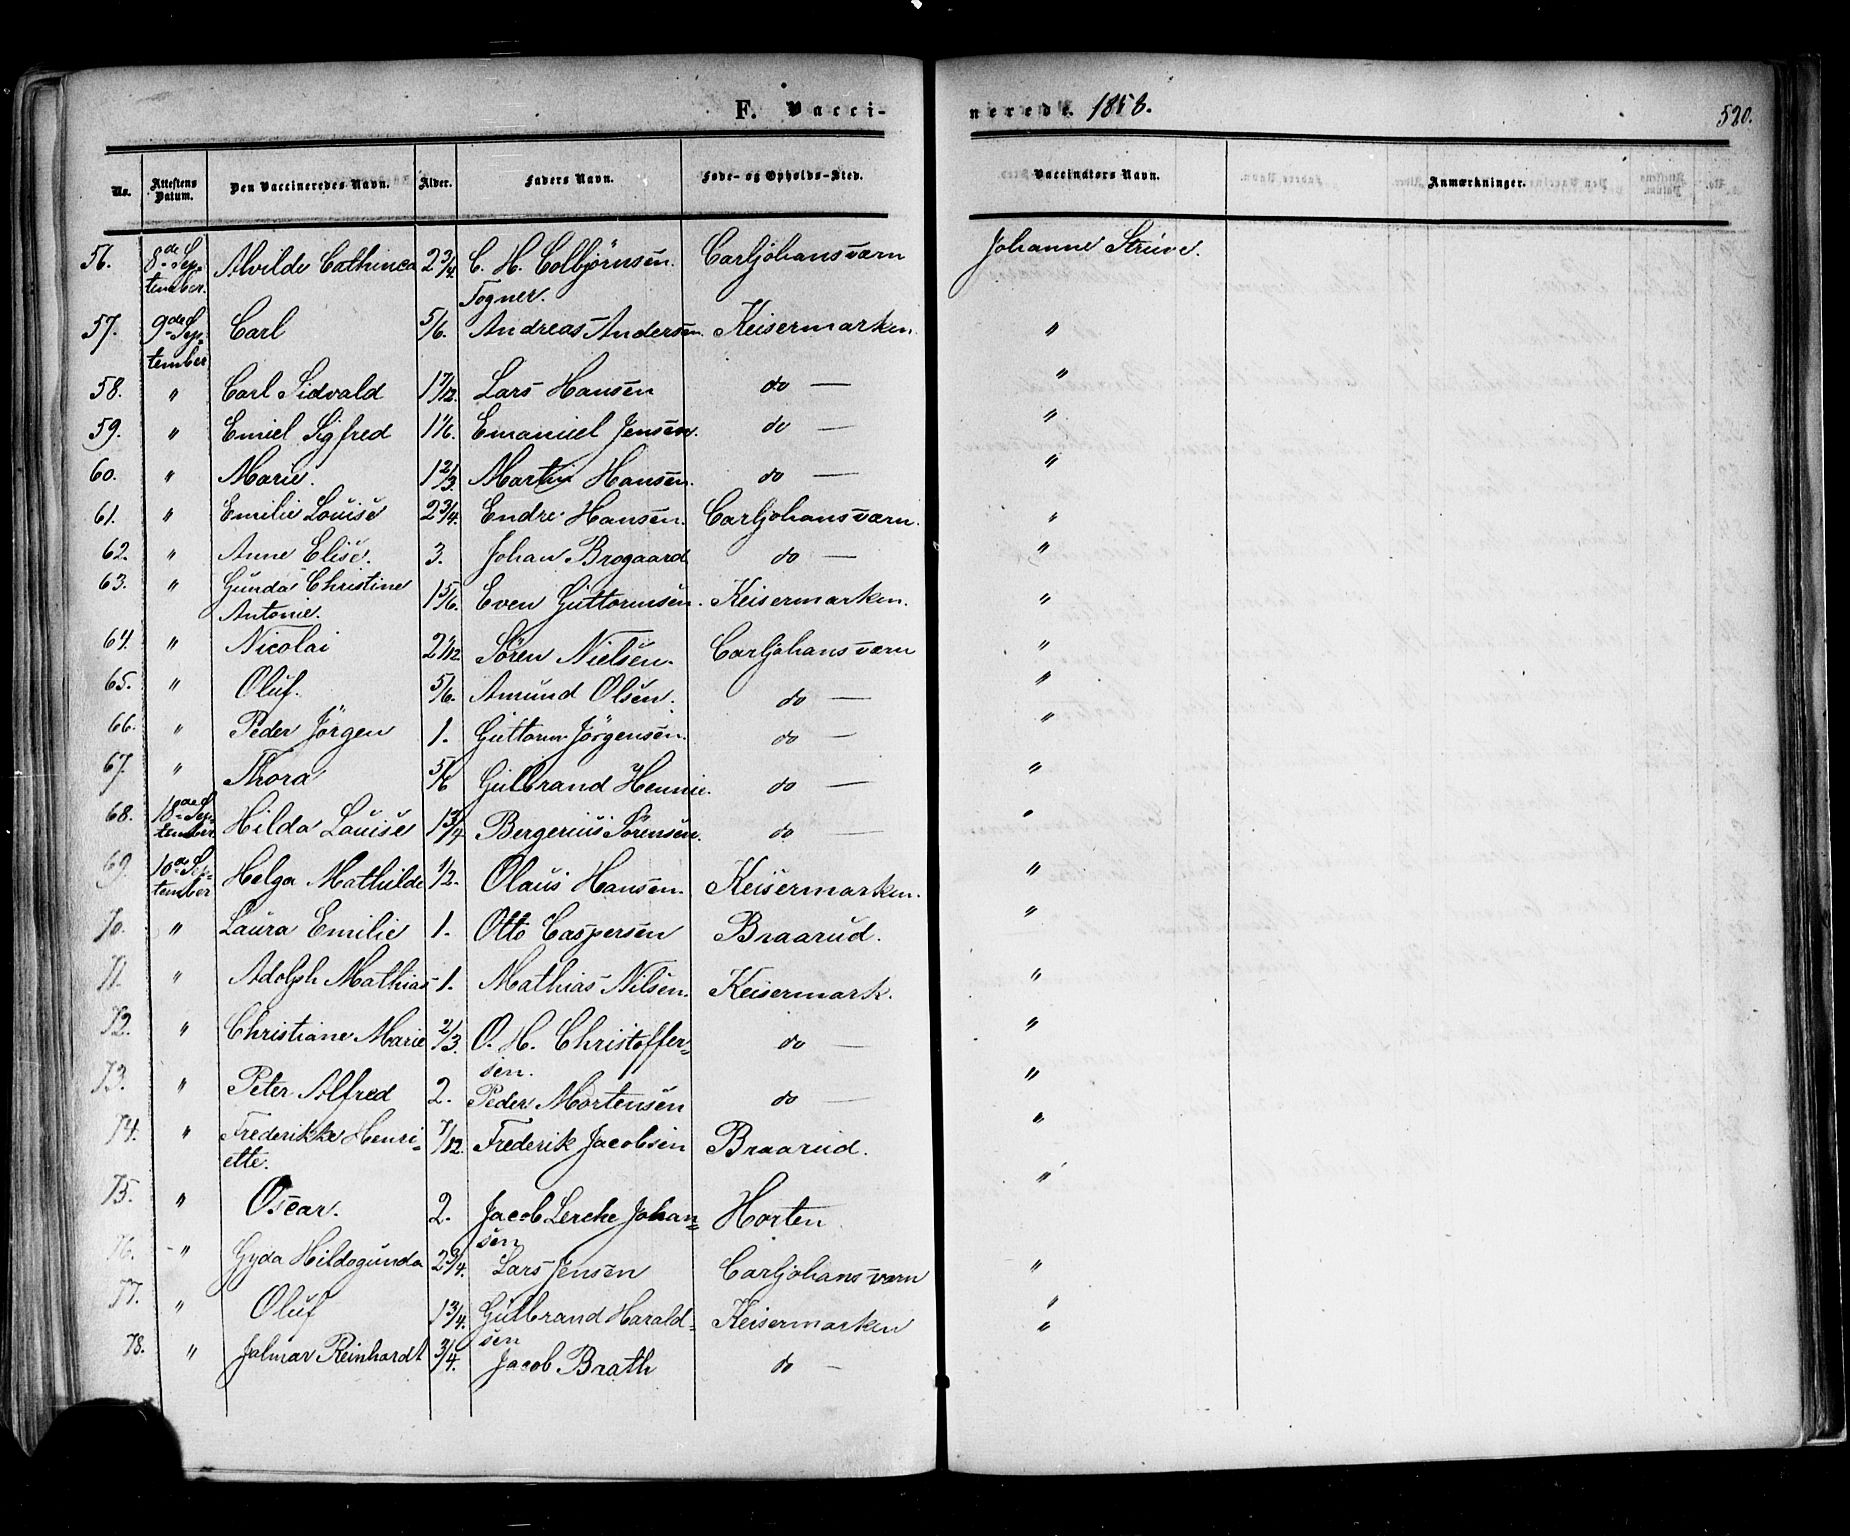 F. Vaccinerede 1858. 520.
No. Attestens Datum. Den Vaccineredes Navn. Alder. Faders Navn. Føde- og Opholds-Sted. Vaccinatørs Navn. Anmærkninger.
56. 8de September. Alvilde Cathinca 2 3/4. C. H. Colbjörnsen. Carljohansværn Johanne Strüve.
Togner.
57. 9de September Carl 5/6. Andreas Andersen. Keisermarken. "
58. " Carl Sidvald 1 7/12. Lars Hansen do — "
59. " Emiel Sigfred 1 1/6. Emanuel Jensen. do — "
60. " Marie. 1 2/3. Martin Hansen. do — "
61. " Emilie Louise 2 3/4. Endre Hansen. Carljohansværn. "
62. " Anne Elise. 3. Johan Brogaard do — "
63. " Gunda Christine Antonie. 1 5/6. Even Guttormsen. Keisermarken. "
64. " Nicolai 2 1/12. Sören Nielsen. Carljohansværn "
65. " Oluf. 5/6. Amund Olsen. do — "
66. " Peder Jörgen 1. Guttorm Jörgensen. do — "
67. " Thora 5/6 Gulbrand Hennie. do — "
68. 10de September. Hilda Louise 1 3/4 Bergerius Sörensen. do — "
69. 10de September Helga Mathilde 1/2. Olaus Hansen. Keisermarken. "
70. " Laura Emilie 1. Otto Caspersen Braarud. "
71. " Adolph Mathias 1. Mathias Nilsen. Keisermark. "
72. " Christiane Marie 2/3. O. H. Christoffer-
sen. do — "
73. " Peter Alfred 2. Peder Mortensen do — "
74. " Frederikke Henri-
ette. 7/12. Frederik Jacobsen Braarud. "
75. " Oscar. 2. Jacob Lerche Johan-
sen Horten. "
76. " Gyda Hildogunda 2 3/4. Lars Jensen Carljohansværn "
77. " Oluf 1 3/4. Gulbrand Harald-
sen Keisermarken "
78. " Jalmar Reinhardt 3/4. Jacob Brath do — "